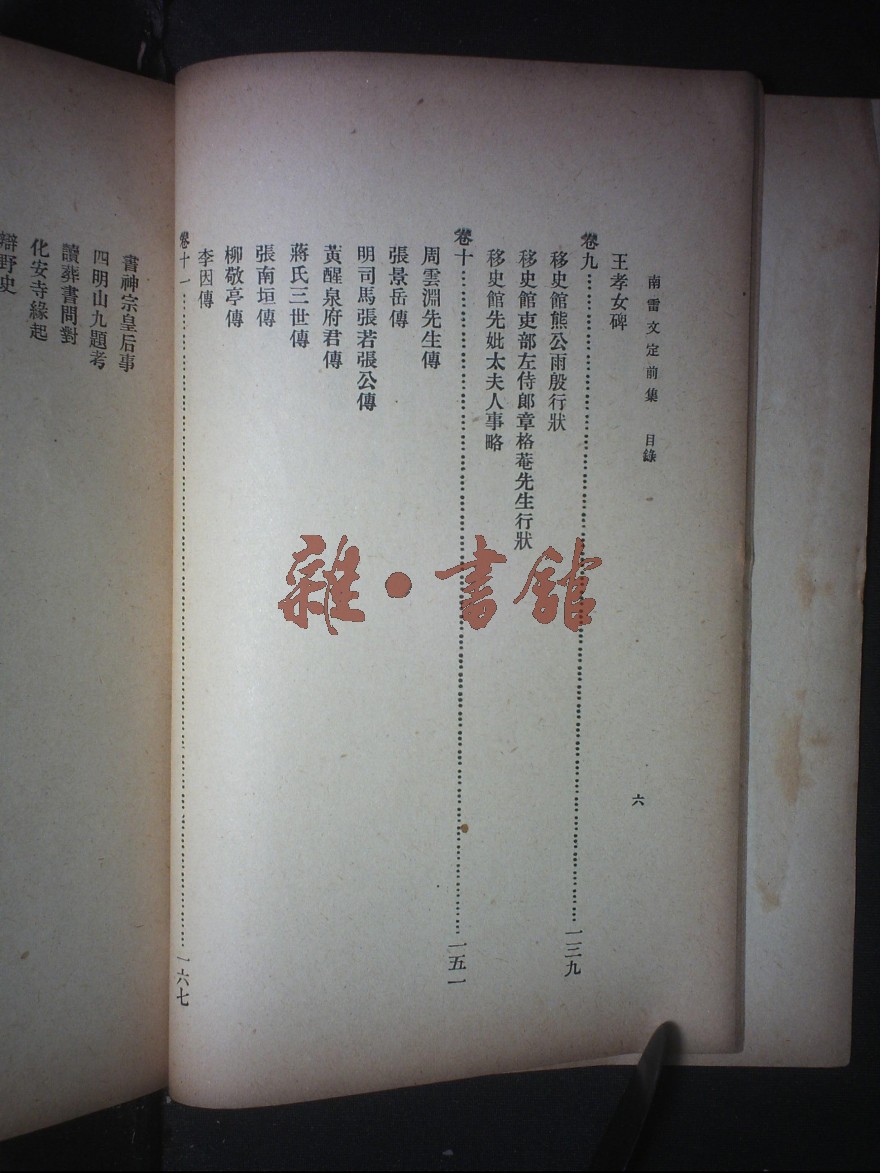 南雷文定前集　目錄
六
王孝女碑
卷九……一三九
移史館熊公雨殷行狀
移史館吏部左侍郎章格菴先生行狀
移史館先妣太夫人事略
卷十……一五一
周雲淵先生傳
張景岳傳
明司馬張若張公傳
黃醒泉府君傳
蔣氏三世傳
張南垣傳
柳敬亭傳
李因傳
卷十一……一六七
書神宗皇后事
四明山九題考
讀葬書問對
化安寺緣起
辯野史
雜·書館